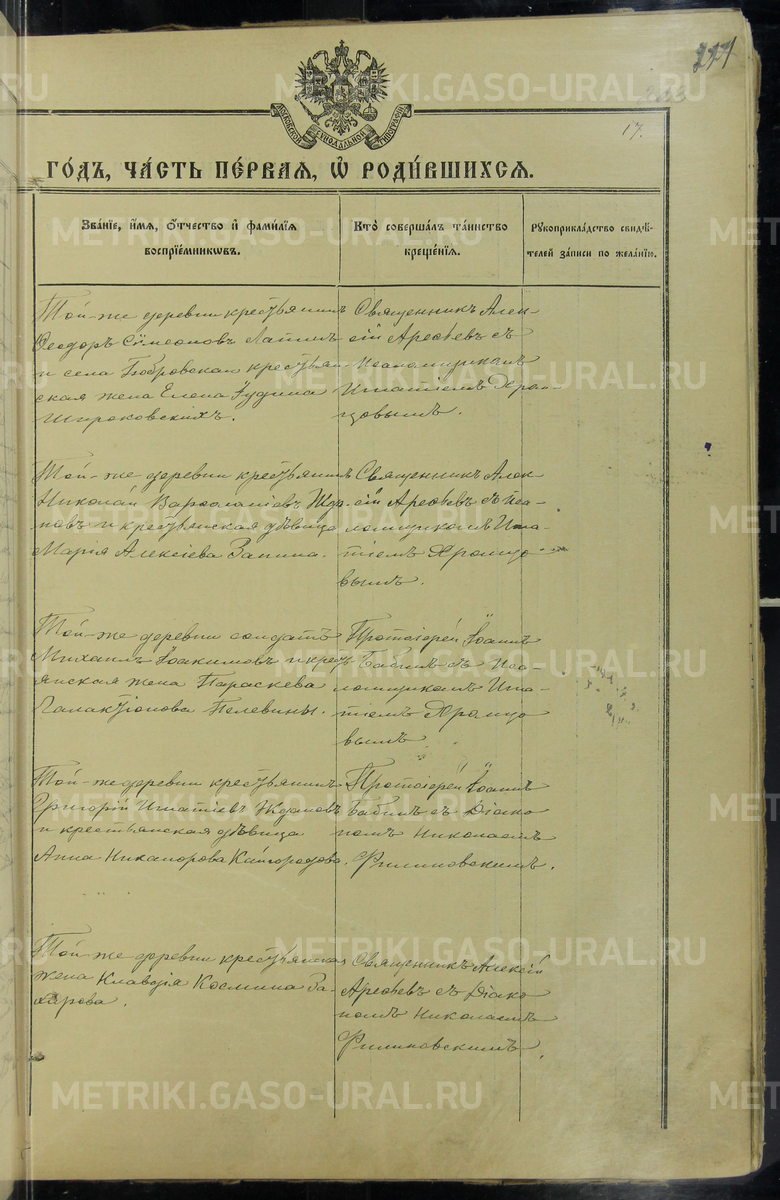 METRIKI.GASO-URAL.RU
277
17.
МОСКОВСКОЙ СѴНОДАЛЬНОЙ ТИПОГРАФІИ
ГО́ДЪ, ЧА́СТЬ ПЕ́РВАЯ, Ѡ҆ РОДИ́ВШИХСЯ.
Зва́нїе, и҆́мя, ѻ҆́тчество и҆ фами́лїя
воспрїе́мникѡвъ.
Кто̀ соверша́лъ та́инство
креще́нїя.
Рꙋкоприкла́дство свидѣ́-
телей за́писи по жела́нїю.
Той-же деревни крестьянинъ
Ѳеодоръ Сѵмеоновъ Лапинъ
и села Бобровскаго крестьян-
ская жена Елена Іудина
Широковскихъ.
Священникъ Алек-
сій Арефьевъ съ
псаломщикомъ
Игнатіемъ Хром-
цовымъ.
Той-же деревни крестьянинъ
Николай Варфоломіевъ Жда-
новъ и крестьянская дѣвица
Марія Алексіева Запина.
Священникъ Алек-
сій Арефьевъ съ пса-
ломщикомъ Игна-
тіемъ Хромцо-
вымъ.
Той-же деревни солдатъ
Михаилъ Іоакимовъ и крест-
янская жена Параскева
Галактіонова Пелевины.
Протоіерей Іоаннъ
Бабинъ съ пса-
ломщикомъ Игна-
тіемъ Хромцо-
вымъ
Той-же деревни крестьянинъ
Григорій Игнатіевъ Ждановъ
и крестьянская дѣвица
Анна Никанорова Кайгородова.
Протоіерей Іоаннъ
Бабинъ съ Діако-
номъ Николаемъ
Филиновскимъ.
Той-же деревни крестьянская
жена Клавдія Космина За-
харова.
Священникъ Алексій
Арефьевъ съ Діако-
номъ Николаемъ
Филиновскимъ.